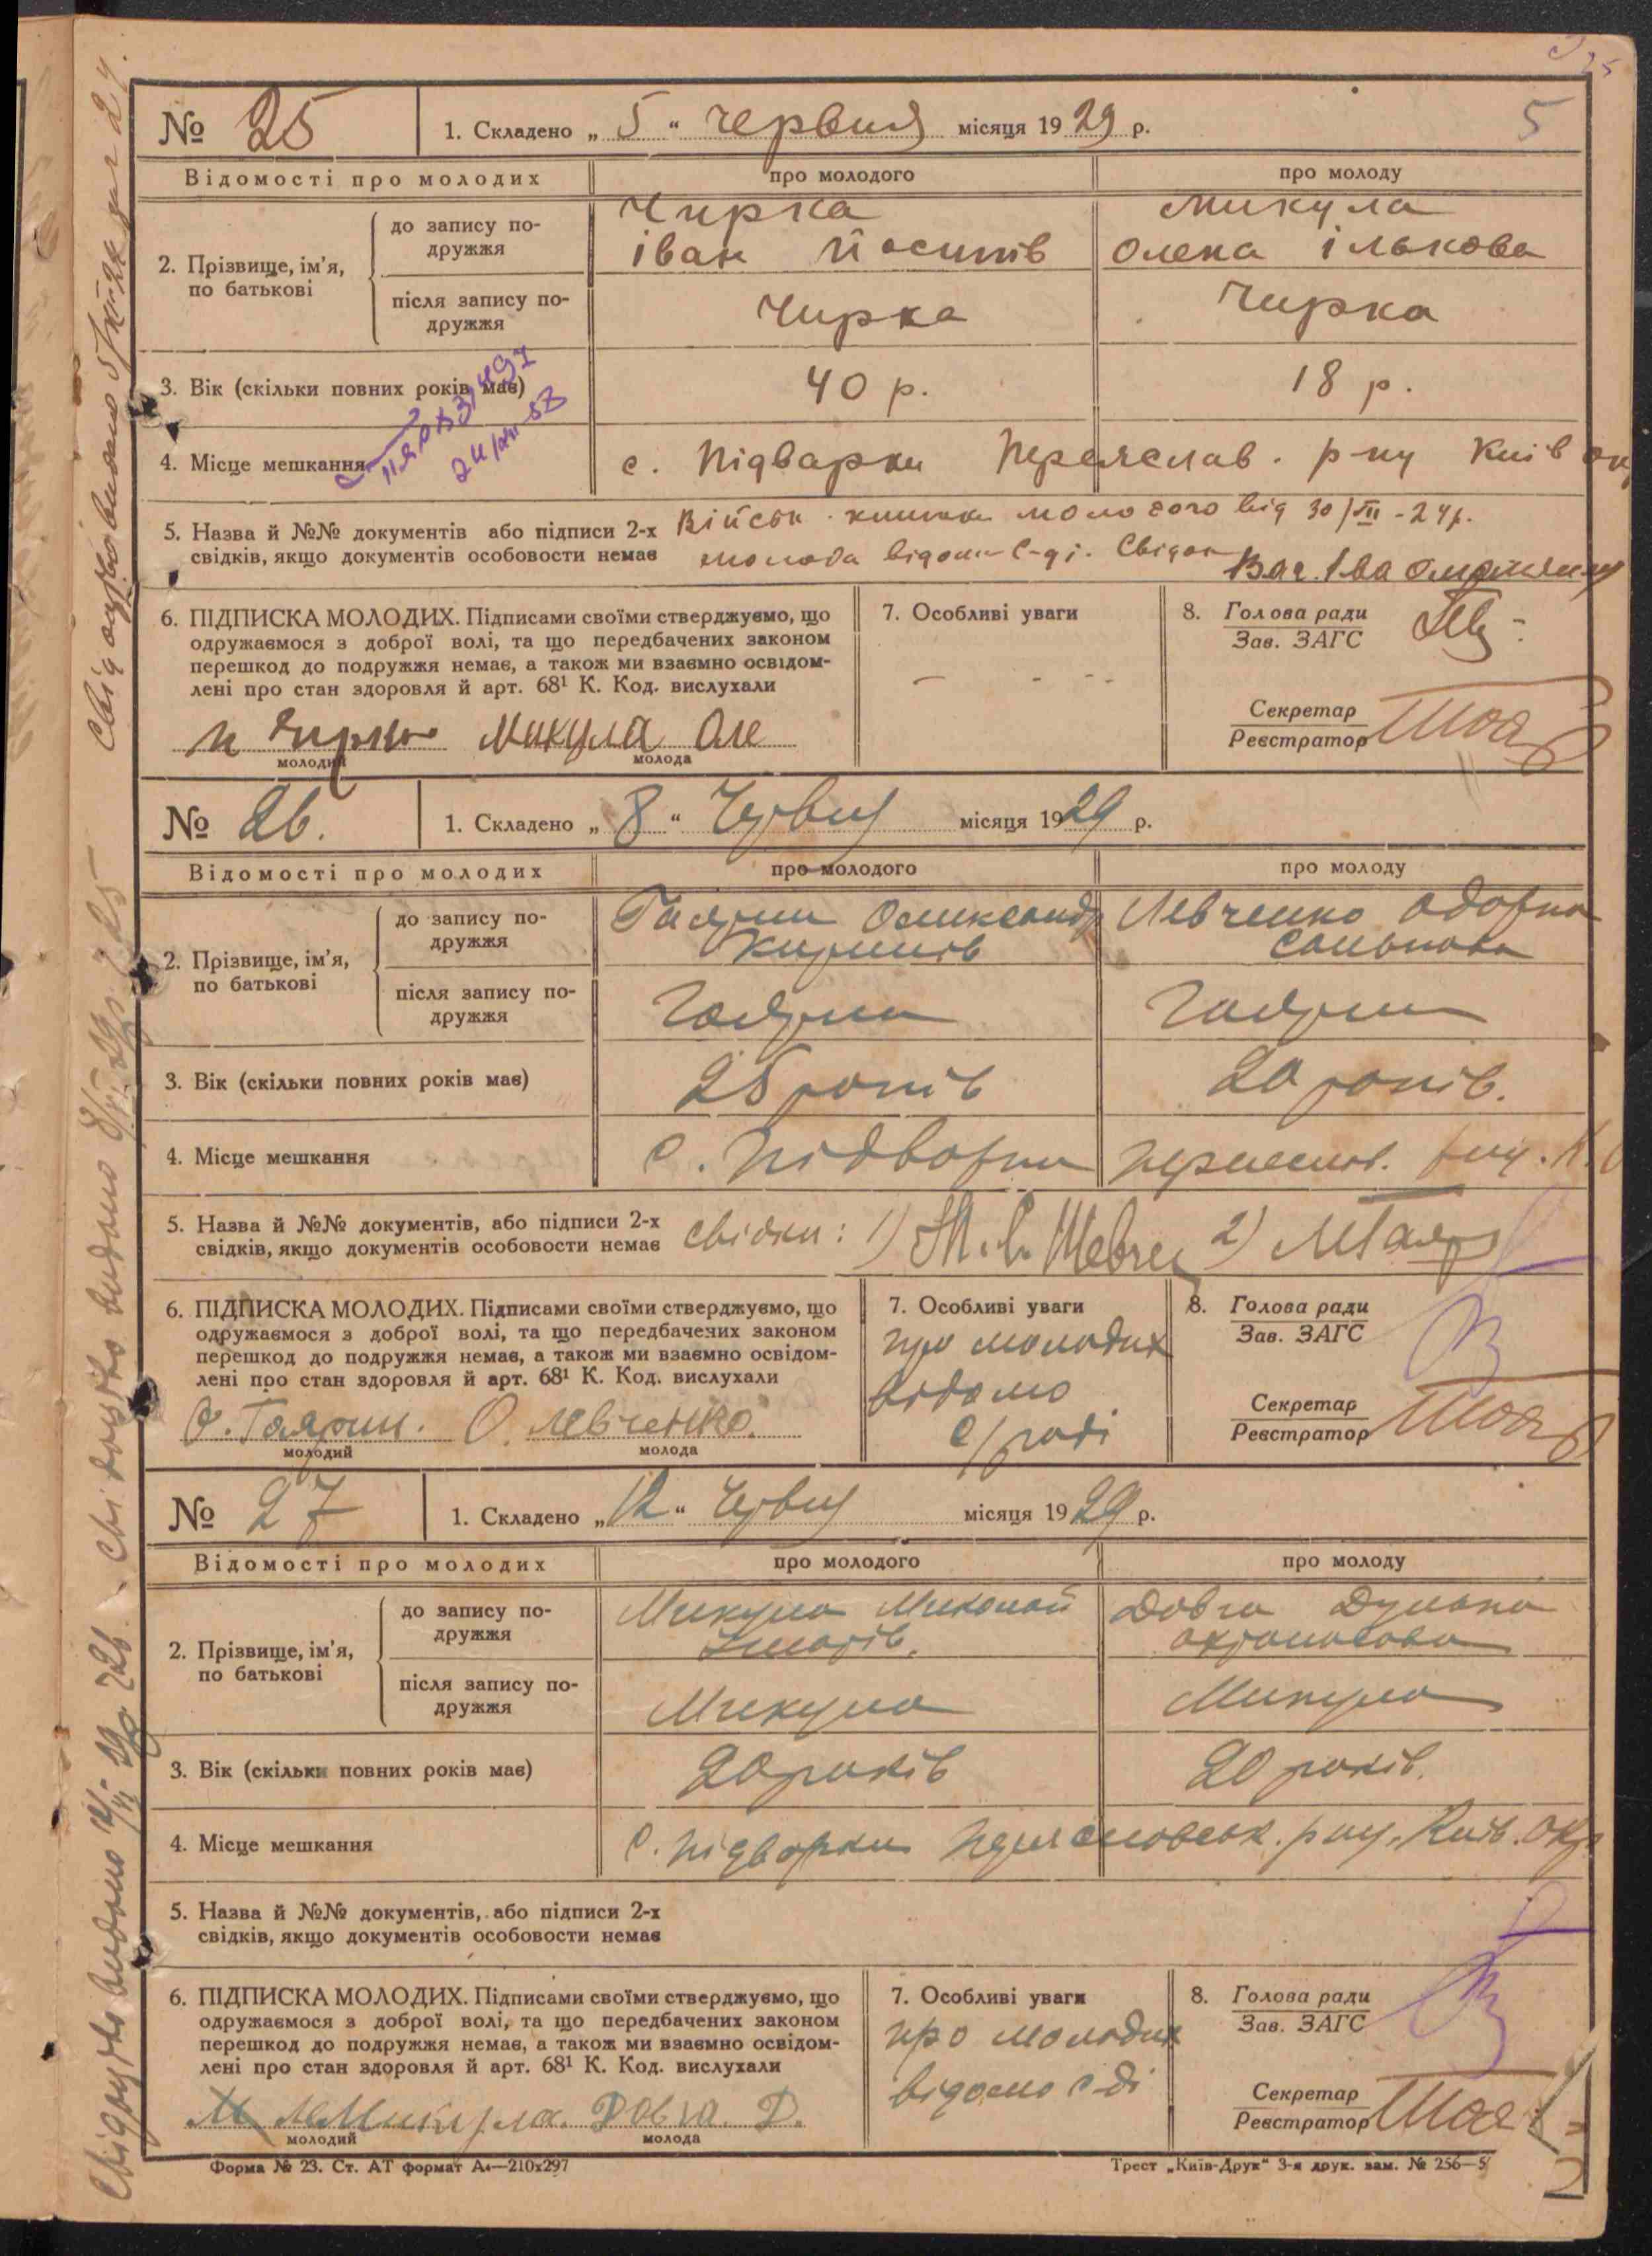 5
№ 25
1. Складено „ 5 “ червня місяця 1929 р.
Відомості про молодих
про молодого
про молоду
2. Прізвище, ім’я, по батькові
до запису подружжя
Чирка
іван Йосипів
Микула
Олена ількова
після запису подружжя
Чирка
Чирка
3. Вік (скільки повних років має)
40 р.
18 р.
4. Місце мешкання
с. Підварки Переяслав. р-ну Київ ок
5. Назва й №№ документів або підписи 2-х
свідків, якщо документів особовости немає
Військ. книжка молодого від 30/VII - 24р.
молода відома С-ді. Свідок
6. ПІДПИСКА МОЛОДИХ. Підписами своїми стверджуємо, що
одружаємося з доброї волі, та що передбачених законом
перешкод до подружжя немає, а також ми взаємно освідом-
лені про стан здоровля й арт. 68¹ К. Код. вислухали
Чирка Микула Оле
молодий
молода
7. Особливі уваги
8. Голова ради
Зав. ЗАГС
Секретар
Реєстратор
№ 26.
1. Складено „ 8 “ Червня місяця 1929 р.
Відомості про молодих
про молодого
про молоду
2. Прізвище, ім’я, по батькові
до запису подружжя
Гаярин Олександр
Левченко Одарка
після запису подружжя
Гаярин
Гаярин
3. Вік (скільки повних років має)
25 років
20 років.
4. Місце мешкання
с. Підворки Переяслав. р-ну. К.
5. Назва й №№ документів, або підписи 2-х
свідків, якщо документів особовости немає
свідки: 1) 2)
6. ПІДПИСКА МОЛОДИХ. Підписами своїми стверджуємо, що
одружаємося з доброї волі, та що передбачених законом
перешкод до подружжя немає, а також ми взаємно освідом-
лені про стан здоровля й арт. 68¹ К. Код. вислухали
О. Гаярин. О. Левченко.
молодий
молода
7. Особливі уваги
про молодих
відомо
с/раді
8. Голова ради
Зав. ЗАГС
Секретар
Реєстратор
№ 27
1. Складено „ 12 “ Червня місяця 1929 р.
Відомості про молодих
про молодого
про молоду
2. Прізвище, ім’я, по батькові
до запису подружжя
Микула Миколай
Довга Дунька
після запису подружжя
Микула
Микула
3. Вік (скільки повних років має)
20 років
20 років.
4. Місце мешкання
с. Підворки Переяславськ. р-ну. Київ. Окр
5. Назва й №№ документів, або підписи 2-х
свідків, якщо документів особовости немає
6. ПІДПИСКА МОЛОДИХ. Підписами своїми стверджуємо, що
одружаємося з доброї волі, та що передбачених законом
перешкод до подружжя немає, а також ми взаємно освідом-
лені про стан здоровля й арт. 68¹ К. Код. вислухали
М Микула. Довга. Д.
молодий
молода
7. Особливі уваги
про молодих
відомо с-ді
8. Голова ради
Зав. ЗАГС
Секретар
Реєстратор
Форма № 23. Ст. АТ формат А₄—210x297
Трест „Київ-Друк“ 3-я друк. зам. № 256—5